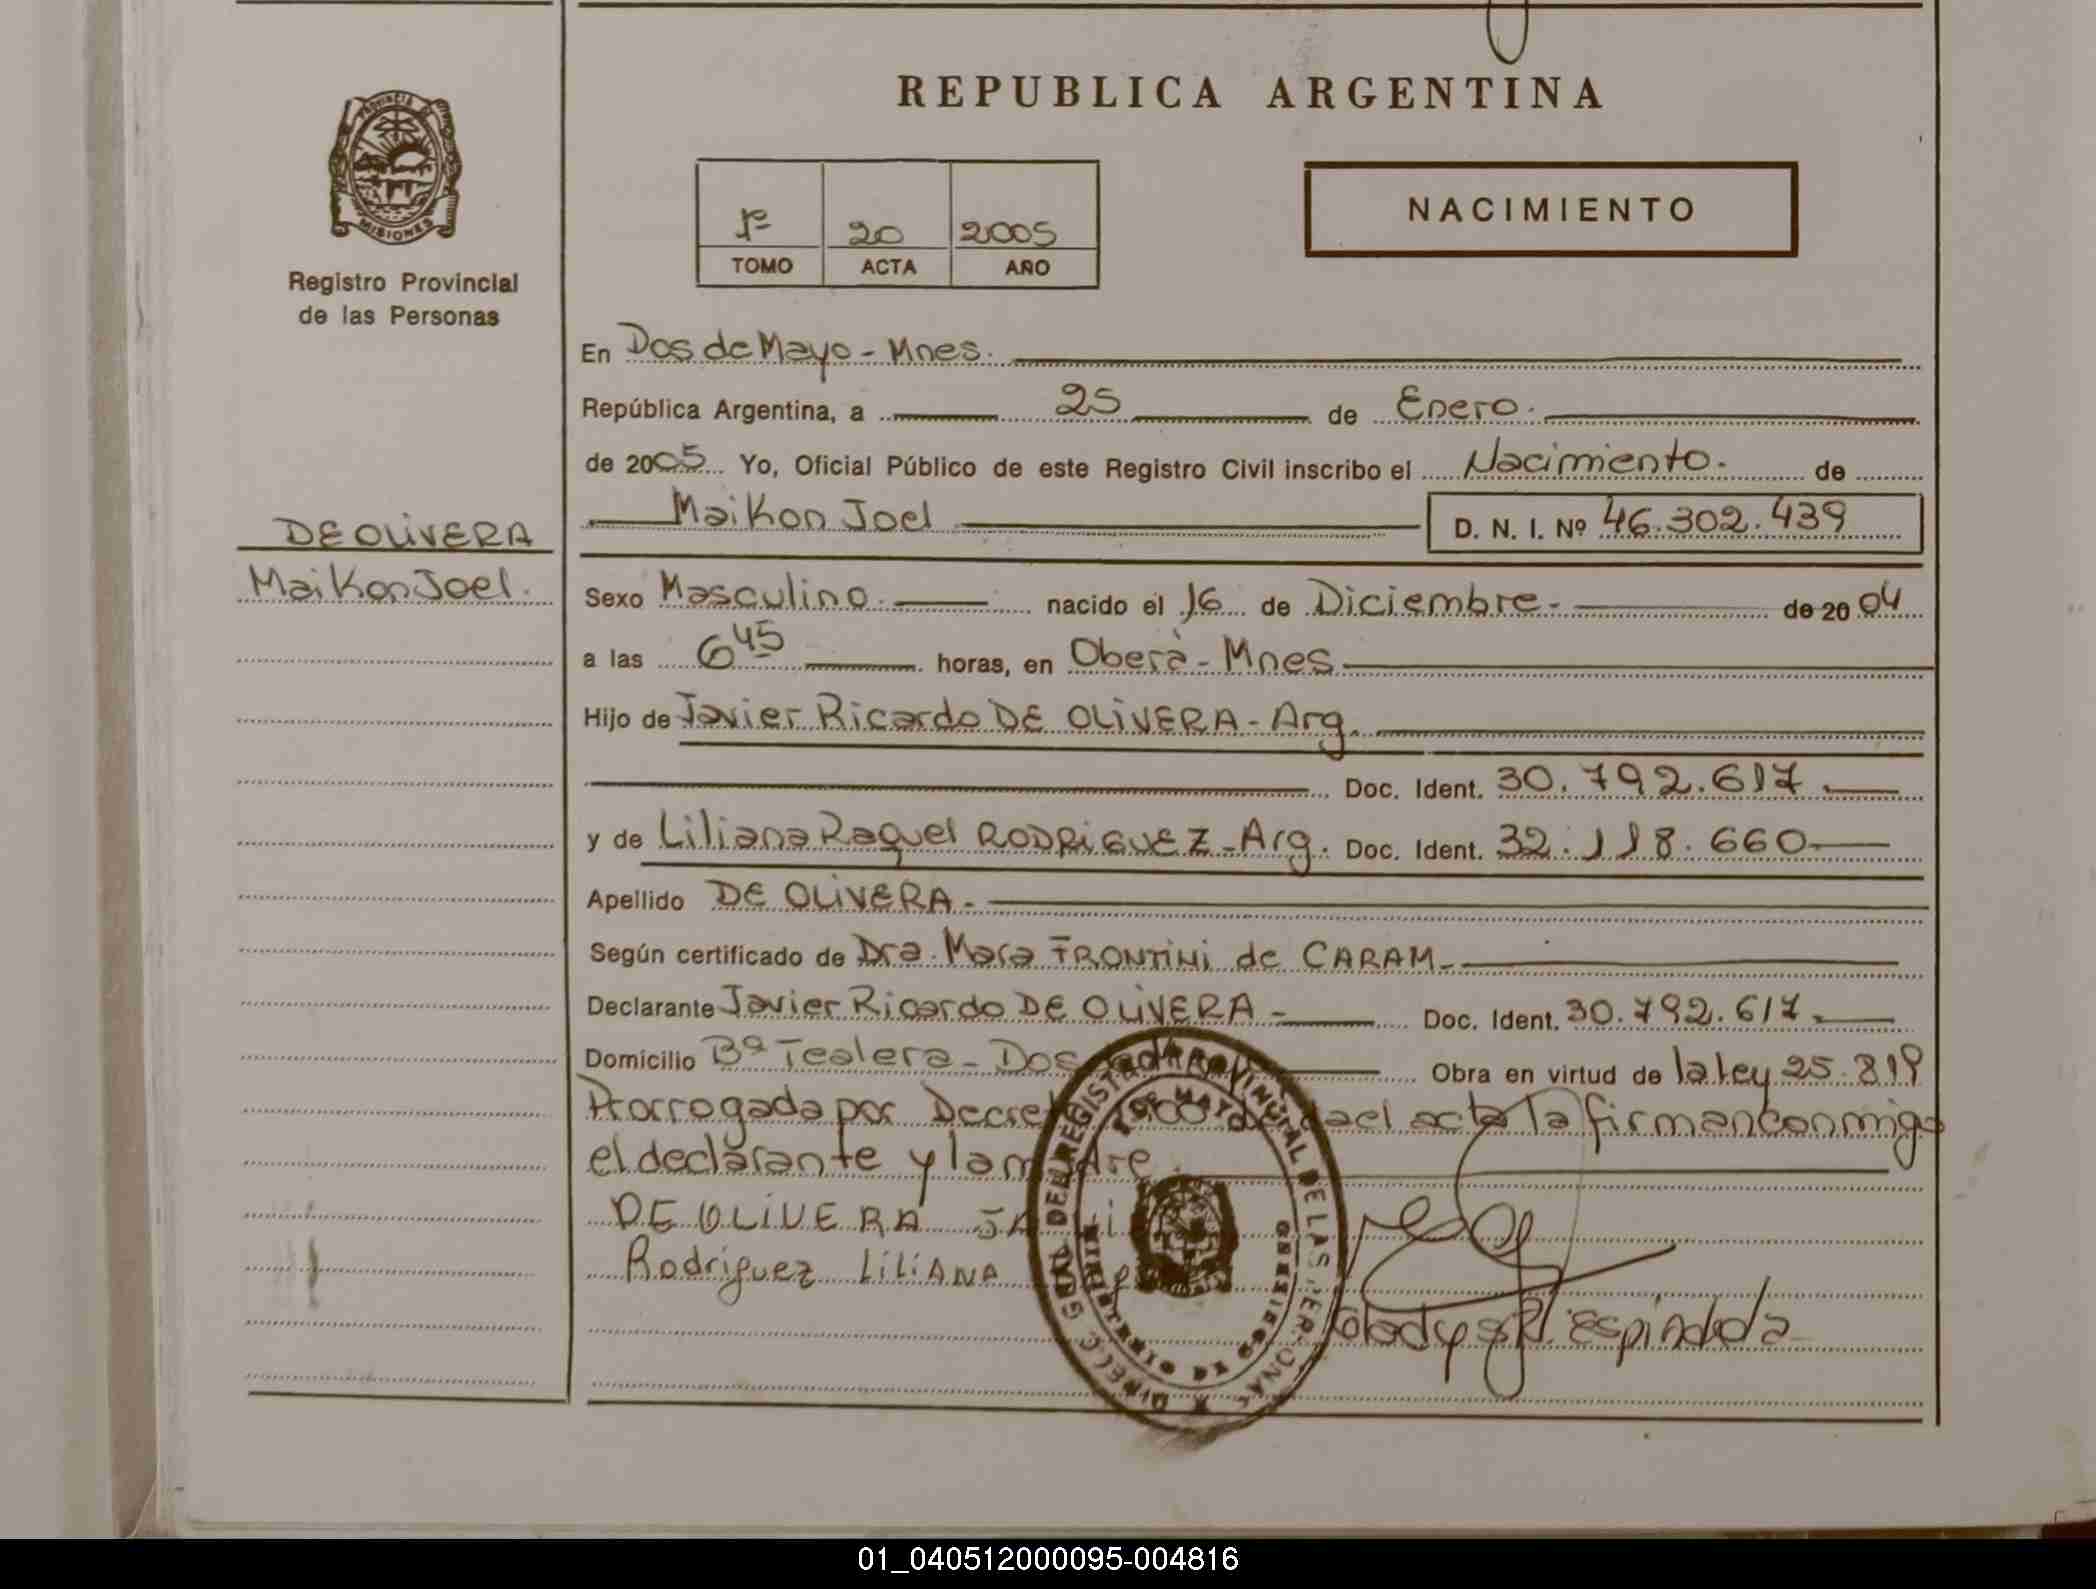 REPUBLICA ARGENTINA
PROVINCIA DE
MISIONES
Registro Provincial
de las Personas
NACIMIENTO
1º 20 2005
TOMO ACTA AÑO
En Dos de Mayo - Mnes.
República Argentina, a 25 de Enero.
de 2005 Yo, Oficial Público de este Registro Civil inscribo el Nacimiento. de
Maikon Joel D. N. I. Nº 46.302.439
DE OLIVERA
Maikon Joel.
Sexo Masculino. nacido el 16 de Diciembre. de 2004
a las 6 45 horas, en Oberá - Mnes.
Hijo de Javier Ricardo DE OLIVERA - Arg.
Doc. Ident. 30.792.617
y de Liliana Raquel RODRIGUEZ - Arg. Doc. Ident. 32.118.660
Apellido DE OLIVERA.
Según certificado de Dra. Mara FRONTINI de CARAM
Declarante Javier Ricardo DE OLIVERA - Doc. Ident. 30.792.617
Domicilio Bº Tealera - Dos Obra en virtud de la ley 25.819
Prorrogada por acta la firman conmigo
el declarante y la madre.
DE OLIVERA
Rodriguez LILIANA
Gladys R. Espindola
DIREC. GRAL DEL REGISTRO PROVINCIAL DE LAS PERSONAS
MINISTERIO DE GOBIERNO
2 DE MAYO
01_040512000095-004816